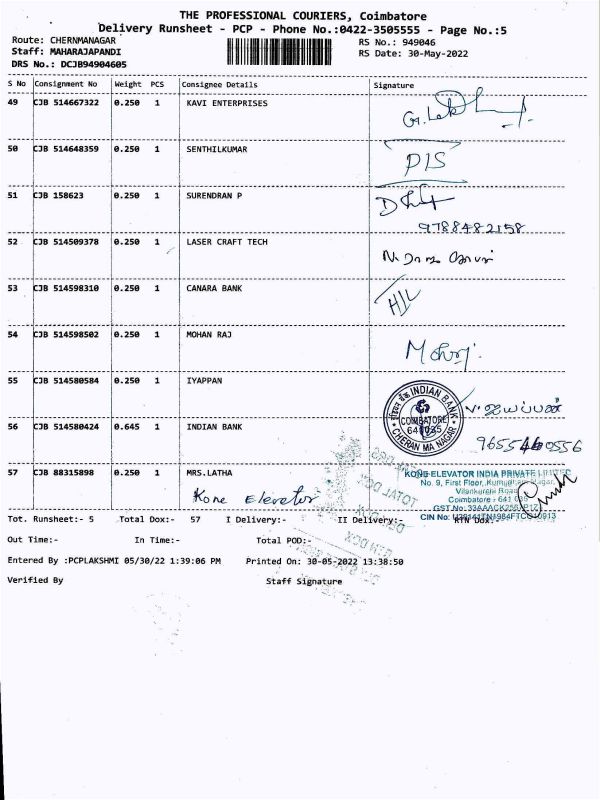 THE PROFESSIONAL COURIERS, Coimbatore
Delivery Runsheet - PCP - Phone No.:0422-3505555 - Page No.:5
Route: CHERNMANAGAR RS No.: 949046
Staff: MAHARAJAPANDI RS Date: 30-May-2022
DRS No.: DCJB94904605
S No Consignment No Weight PCS Consignee Details Signature
49 CJB 514667322 0.250 1 KAVI ENTERPRISES
50 CJB 514648359 0.250 1 SENTHILKUMAR
51 CJB 158623 0.250 1 SURENDRAN P
9788482158
52 CJB 514509378 0.250 1 LASER CRAFT TECH
53 CJB 514598310 0.250 1 CANARA BANK
54 CJB 514598502 0.250 1 MOHAN RAJ
55 CJB 514580584 0.250 1 IYAPPAN
INDIAN BANK
COIMBATORE
641035
CHERAN MA NAGAR
56 CJB 514580424 0.645 1 INDIAN BANK
57 CJB 88315898 0.250 1 MRS.LATHA
Kone Elevator
KONE ELEVATOR INDIA PRIVATE LIMITED
No. 9, First Floor,
Coimbatore - 641
Tot. Runsheet:- 5 Total Dox:- 57 I Delivery:- II Delivery:- RTN Dox:-
Out Time:- In Time:- Total POD:-
Entered By :PCPLAKSHMI 05/30/22 1:39:06 PM Printed On: 30-05-2022 13:38:50
Verified By Staff Signature